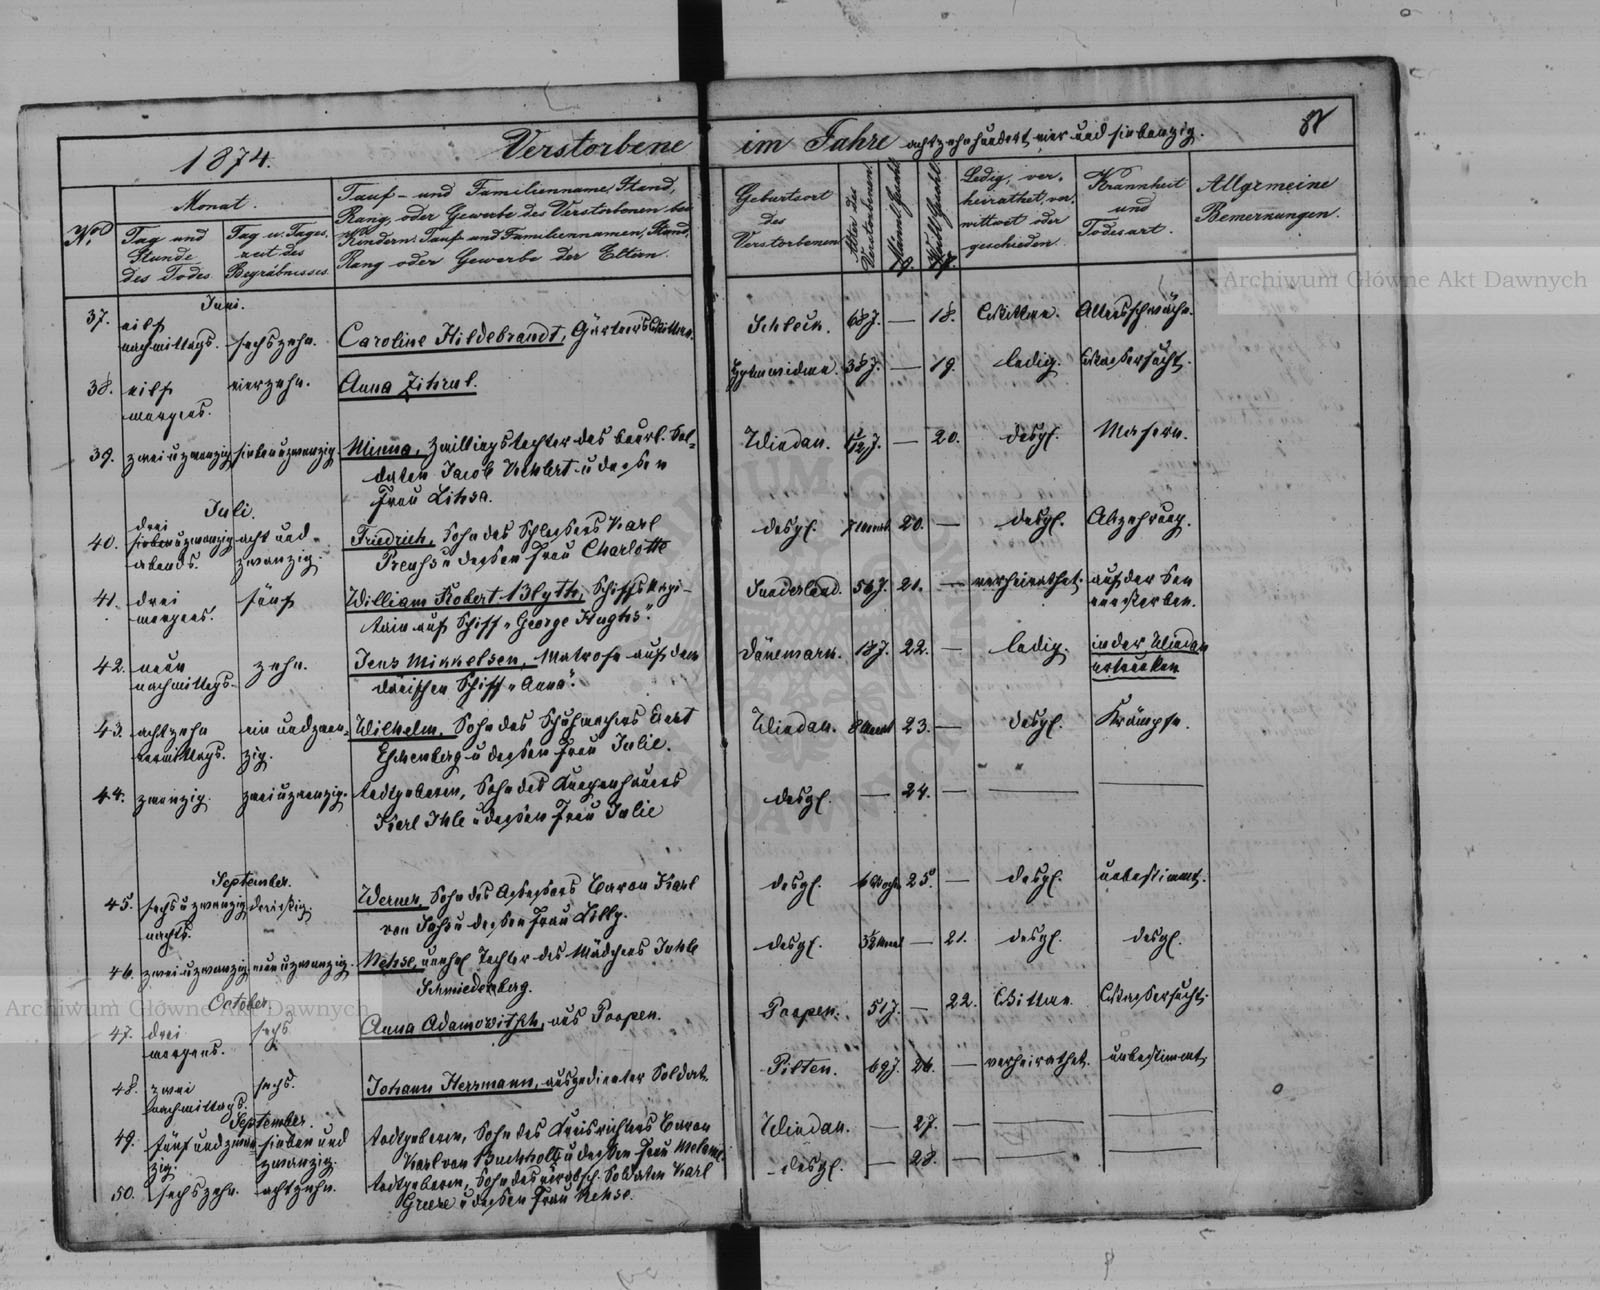 1874. Verstorbene im Jahre achtzehnhundert vier und siebenzig.
No.
Monat.
Tag und Stunde des Todes
Tag u. Tageszeit des Begräbnisses.
Tauf- und Familienname, Stand,
Rang, oder Gewerbe des Verstorbenen bei
Kindern: Tauf- und Familiennamen, Stand,
Rang oder Gewerbe der Eltern.
Geburtsort des Verstorbenen
Alter des Verstorbenen
Männl. Geschl.
19.
Weibl. Geschl.
17.
Ledig, verheirathet, verwittwet oder geschieden
Krankheit und Todesart.
Allgemeine Bemerkungen.
Juni.
37. eilf nachmittags. sechszehn. Caroline Hildebrandt, Gärtners Wittwe. Schleck. 68 J. — 18. Wittwe. Altersschwäche.
38. eilf morgens. vierzehn. Anna Zihrul. 38 J. — 19. ledig. Wassersucht.
39. zwei u zwanzig sieben u zwanzig Minna, Zwillingstochter des beurl. Sol-
daten Jacob u dessen
Frau Lihsa. Windau. J. — 20. desgl. Masern.
Juli.
40. drei u zwanzig abends. acht und zwanzig. Friedrich, Sohn des Schlossers Karl
Preuss u dessen Frau Charlotte desgl. 7 Monat 20. — desgl. Abzehrung.
41. drei morgens. fünf William Robert Blyth, Schiffskapi-
tain auf Schiff „George Hughs". Sunderland. 56 J. 21. — verheirathet. auf der See verstorben.
42. neun nachmittags. zehn. Jens Mikkelsen, Matrose auf dem
dänischen Schiff „Anna". Dänemark. 18 J. 22. — ledig. in der Windau ertrunken
43. achtzehn vormittags. ein und zwanzig. Wilhelm, Sohn des Schuhmachers Ewert
Eschenberg u dessen Frau Julie. Windau. 8 Monat 23. — desgl. Krämpfe.
44. zwanzig. zwei u zwanzig. todtgeboren, Sohn des
Karl Ihle u dessen Frau Julie desgl. — 24. — — —
September.
45. sechs u zwanzig nachts. dreissig. Werner, Sohn des Assessors Baron Karl
von Sass u dessen Frau Lilly. desgl. 6 Woch. 25. — desgl. unbestimmt.
46. zwei u zwanzig neun u zwanzig. Rehse, unehel Tochter des Mädchens Juhle
Schmiedenberg. desgl. 3½ Monat — 21. desgl. desgl.
October.
47. drei morgens. sechs Anna Adamowitsch, aus Poopen. Poopen. 51 J. — 22. Wittwe. Wassersucht.
48. zwei nachmittags. sechs. Johann Herrmann, ausgedienter Soldat. Pilten. 69 J. 26. — verheirathet. unbestimmt.
September.
49. fünf und zwanzig. sieben und zwanzig. todtgeboren, Sohn des Kreisrichters Baron
Karl von Buchholtz u dessen Frau Melanie. Windau. — 27. — — —
50. sechszehn. achtzehn. todtgeboren, Sohn des Soldaten Karl
u dessen Frau Rehse. desgl. — 28. — — —
Archiwum Główne Akt Dawnych
Archiwum Główne Akt Dawnych